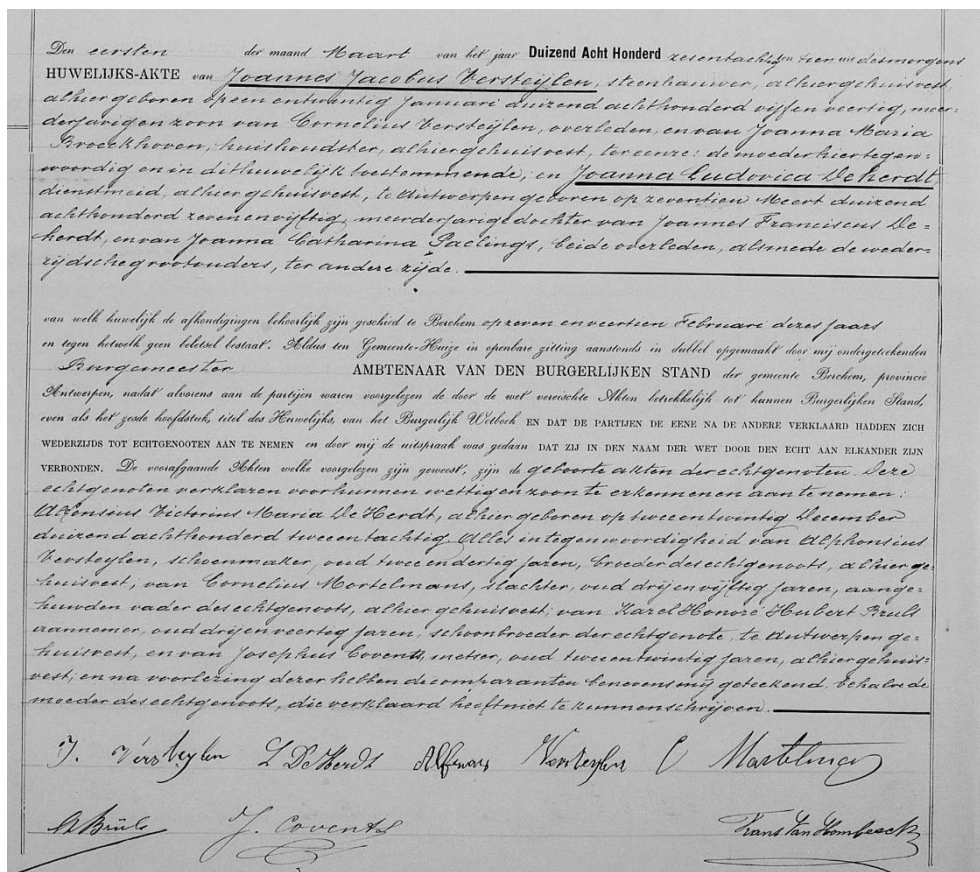 Den eersten der maand Maart van het jaar Duizend Acht Honderd zesentachtig ten tien ure des morgens
HUWELIJKS-AKTE van Joannes Jacobus Versteijlen, steenhouwer, alhier gehuisvest,
alhier geboren op een en twintig Januari duizend achthonderd vijf en veertig, meer-
derjarigen zoon van Cornelius Versteijlen, overleden, en van Joanna Maria
Broeckhoven, huishoudster, alhier gehuisvest, ter eenre: de moeder hier tegen-
woordig en in dit huwelijk toestemmende; en Joanna Ludovica De herdt,
dienstmeid, alhier gehuisvest, te Antwerpen geboren op zeventien Meert duizend
achthonderd zeven en vijftig, meerderjarige dochter van Joannes Franciscus De-
herdt, en van Joanna Catharina Paelings, beide overleden, alsmede de weder-
zijdsche grootouders, ter andere zijde.
van welk huwelijk de afkondigingen behoorlijk zijn geschied te Berchem op zeven en veertien Februari dezes jaars
en tegen hetwelk geen beletsel bestaat. Aldus ten Gemeente-Huize in openbare zitting aanstonds in dubbel opgemaakt door mij ondergeteekenden
Burgemeester AMBTENAAR VAN DEN BURGERLIJKEN STAND der gemeente Berchem, provincie
Antwerpen, nadat alvorens aan de partijen waren voorgelezen de door de wet vereischte Akten betrekkelijk tot hunnen Burgerlijken Stand,
even als het zesde hoofdstuk, titel des Huwelijks, van het Burgerlijk Wetboek EN DAT DE PARTIJEN DE EENE NA DE ANDERE VERKLAARD HADDEN ZICH
WEDERZIJDS TOT ECHTGENOOTEN AAN TE NEMEN en door mij de uitspraak was gedaan DAT ZIJ IN DEN NAAM DER WET DOOR DEN ECHT AAN ELKANDER ZIJN
VERBONDEN. De voorafgaande Akten welke voorgelezen zijn geweest, zijn de geboorte akten der echtgenoten. Deze
echtgenoten verklaren voor hunnen wettigen zoon te erkennen en aan te nemen:
Alfonsius Victorius Maria De Herdt, alhier geboren op twee en twintig December
duizend achthonderd twee en tachtig. Alles in tegenwoordigheid van Alphonsius
Versteylen, schoenmaker, oud twee en dertig jaren, broeder des echtgenoots, alhier ge-
huisvest; van Cornelius Mortelmans, slachter, oud drij en vijftig jaren, aange-
huwden vader des echtgenoots, alhier gehuisvest; van Karel Honoré Hubert Bruls
aannemer, oud drij en veertig jaren, schoonbroeder der echtgenote, te Antwerpen ge-
huisvest, en van Josephus Covents, metser, oud twee en twintig jaren, alhier gehuis-
vest; en na voorlezing dezer hebben de comparanten benevens mij geteekend, behalve de
moeder des echtgenoots, die verklaard heeft niet te kunnen schrijven.
J. Versteylen L De Herdt Alfons Versteylen C Mortelmans
Bruls J. Covents Frans Van Hombeeck